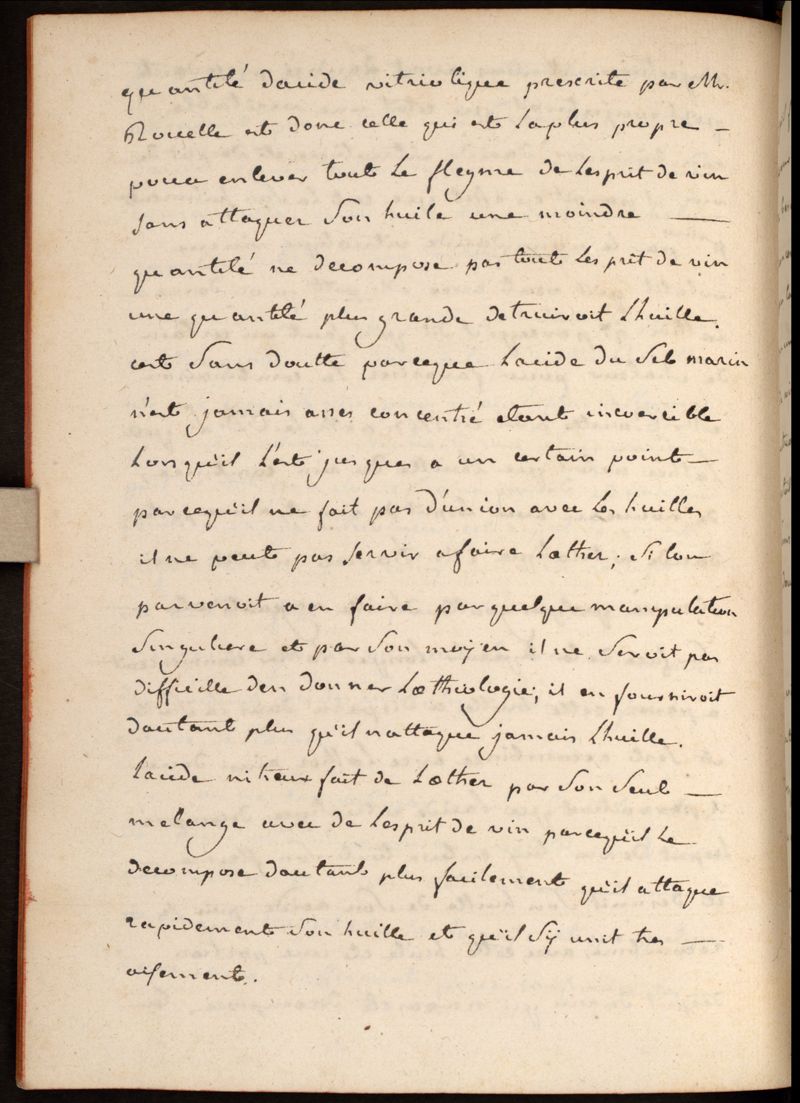 quantité dacide vitriolique prescrite par Mr.
Rouelle est donc celle qui est laplus propre –
pour enlever tout le flegme de lesprit de vin
sans attaquer son huile une moindre —
quantité ne decompose pas tout lesprit de vin
une quantité plus grande detruiroit lhuille.
cest sans doutte parceque lacide du sel marin
n'est jamais assés concentré etant incoercible
lorsqu'il l'est jusques a un certain point –
parcequ'il ne fait pas d'union avec les huilles
il ne peut pas servir afaire læther; si lon
parvenoit a en faire parquelque manipulation
singuliere et par son moÿen il ne seroit pas
difficille den donner læthiologie; il en fourniroit
dautant plus qu'il nattaque jamais lhuille.
lacide nitreux fait de læther par son seul —
melange avec de lesprit de vin parcequ'il le
decompose dautant plus facilement qu'il attaque
rapidement son huille et qu'il s'ÿ unit tres —
aisement.